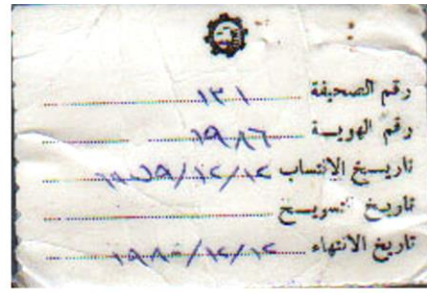 رقم الصحيفة ١٣١
رقم الهوية ١٩٨٦
تاريخ الانتساب ١٢/١٢/
تاريخ التسريح
تاريخ الانتهاء ١٩٨٠/١٢/١٢